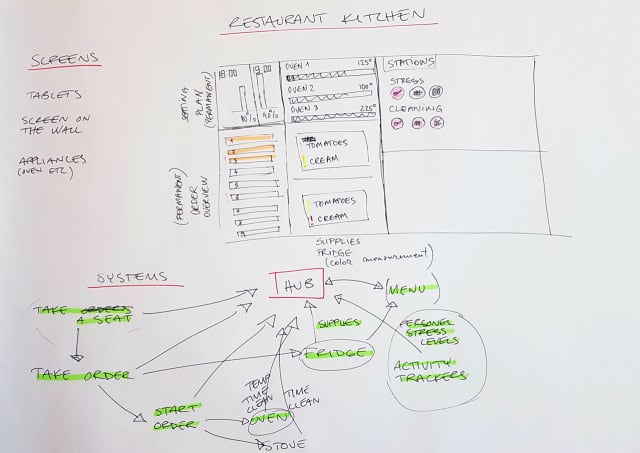 RESTAURANT KITCHEN
SCREENS
TABLETS
SCREEN ON
THE WALL
APPLIANCES
(OVEN ETC)
SEATING
PLAN
(PERMANENT)
18:00
19:00
10%
90%
OVEN 1 125°
OVEN 2 100°
OVEN 3 225°
STATIONS
STRESS
CLEANING
(PERMANENT)
ORDER
OVERVIEW
TOMATOES
! CREAM
TOMATOES
! CREAM
SUPPLIES
FRIDGE
(color measurement)
SYSTEMS
HUB
MENU
TAKE ORDERS
A SEAT
SUPPLIES
PERSONEL
STRESS
LEVELS
FRIDGE
ACTIVITY
TRACKERS
TAKE ORDER
TEMP
TIME
CLEAN
TIME
CLEAN
START
ORDER
OVEN
STOVE